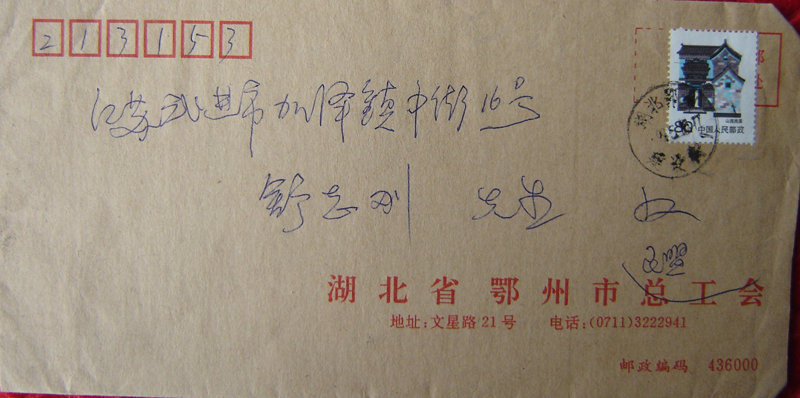 213153
邮
处
山西民居
中国人民邮政
湖北
江苏武进市加泽镇中街16号
舒志刚 先生 收
湖北省鄂州市总工会
地址:文星路21号 电话:(0711)3222941
邮政编码 436000